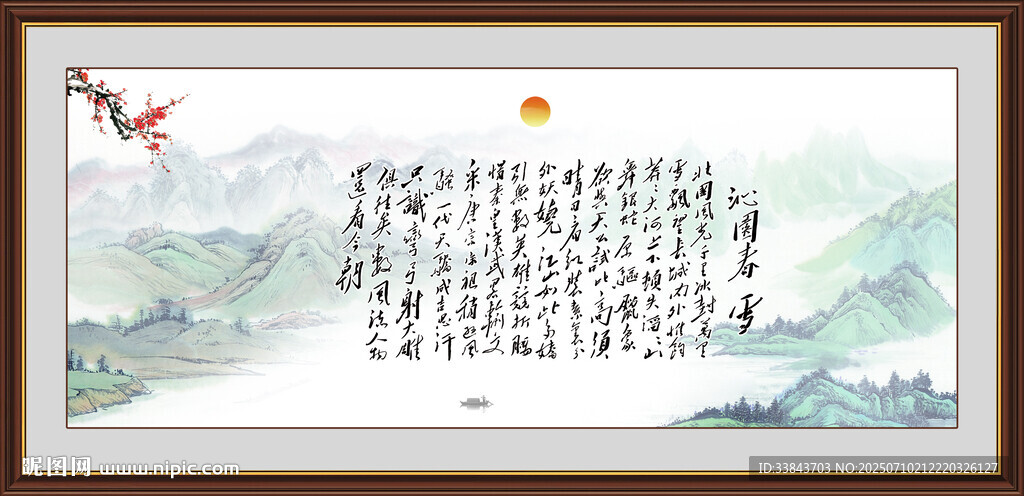 沁園春 雪
北國風光千里冰封萬里
雪飄望長城内外惟餘
莽々大河上下頓失滔々山
舞銀蛇原驅臘象
欲與天公試比高須
晴日看紅裝素裹分
外妖嬈 江山如此多嬌
引無數英雄競折腰
惜秦皇漢武略輸文
采唐宗宋祖稍遜風
騷一代天驕成吉思汗
只識彎弓射大雕
俱往矣數風流人物
還看今朝
昵图网 www.nipic.com
ID:33843703 NO:20250710212220326127